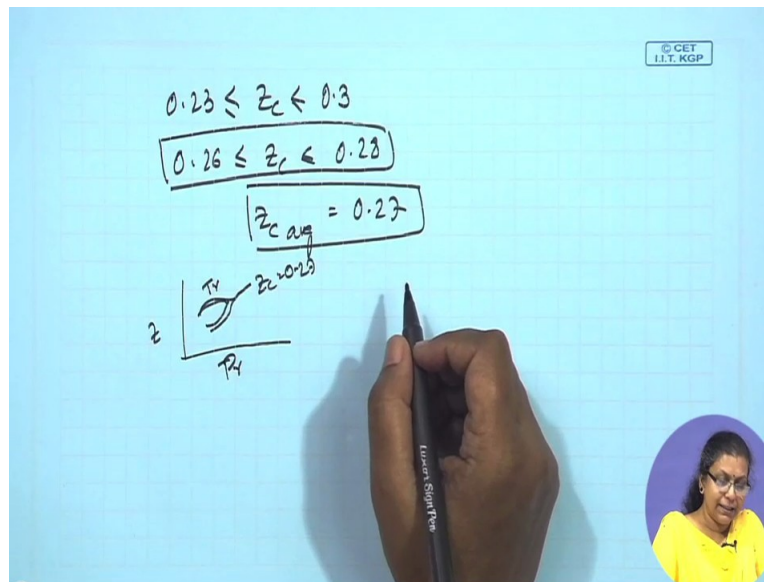 © CET
I.I.T. KGP
0.23 ≤ Zc < 0.3
0.26 ≤ Zc < 0.28
Zc avg = 0.27
Tr
Zc=0.27
Z
Pr
Luxor Sign Pen